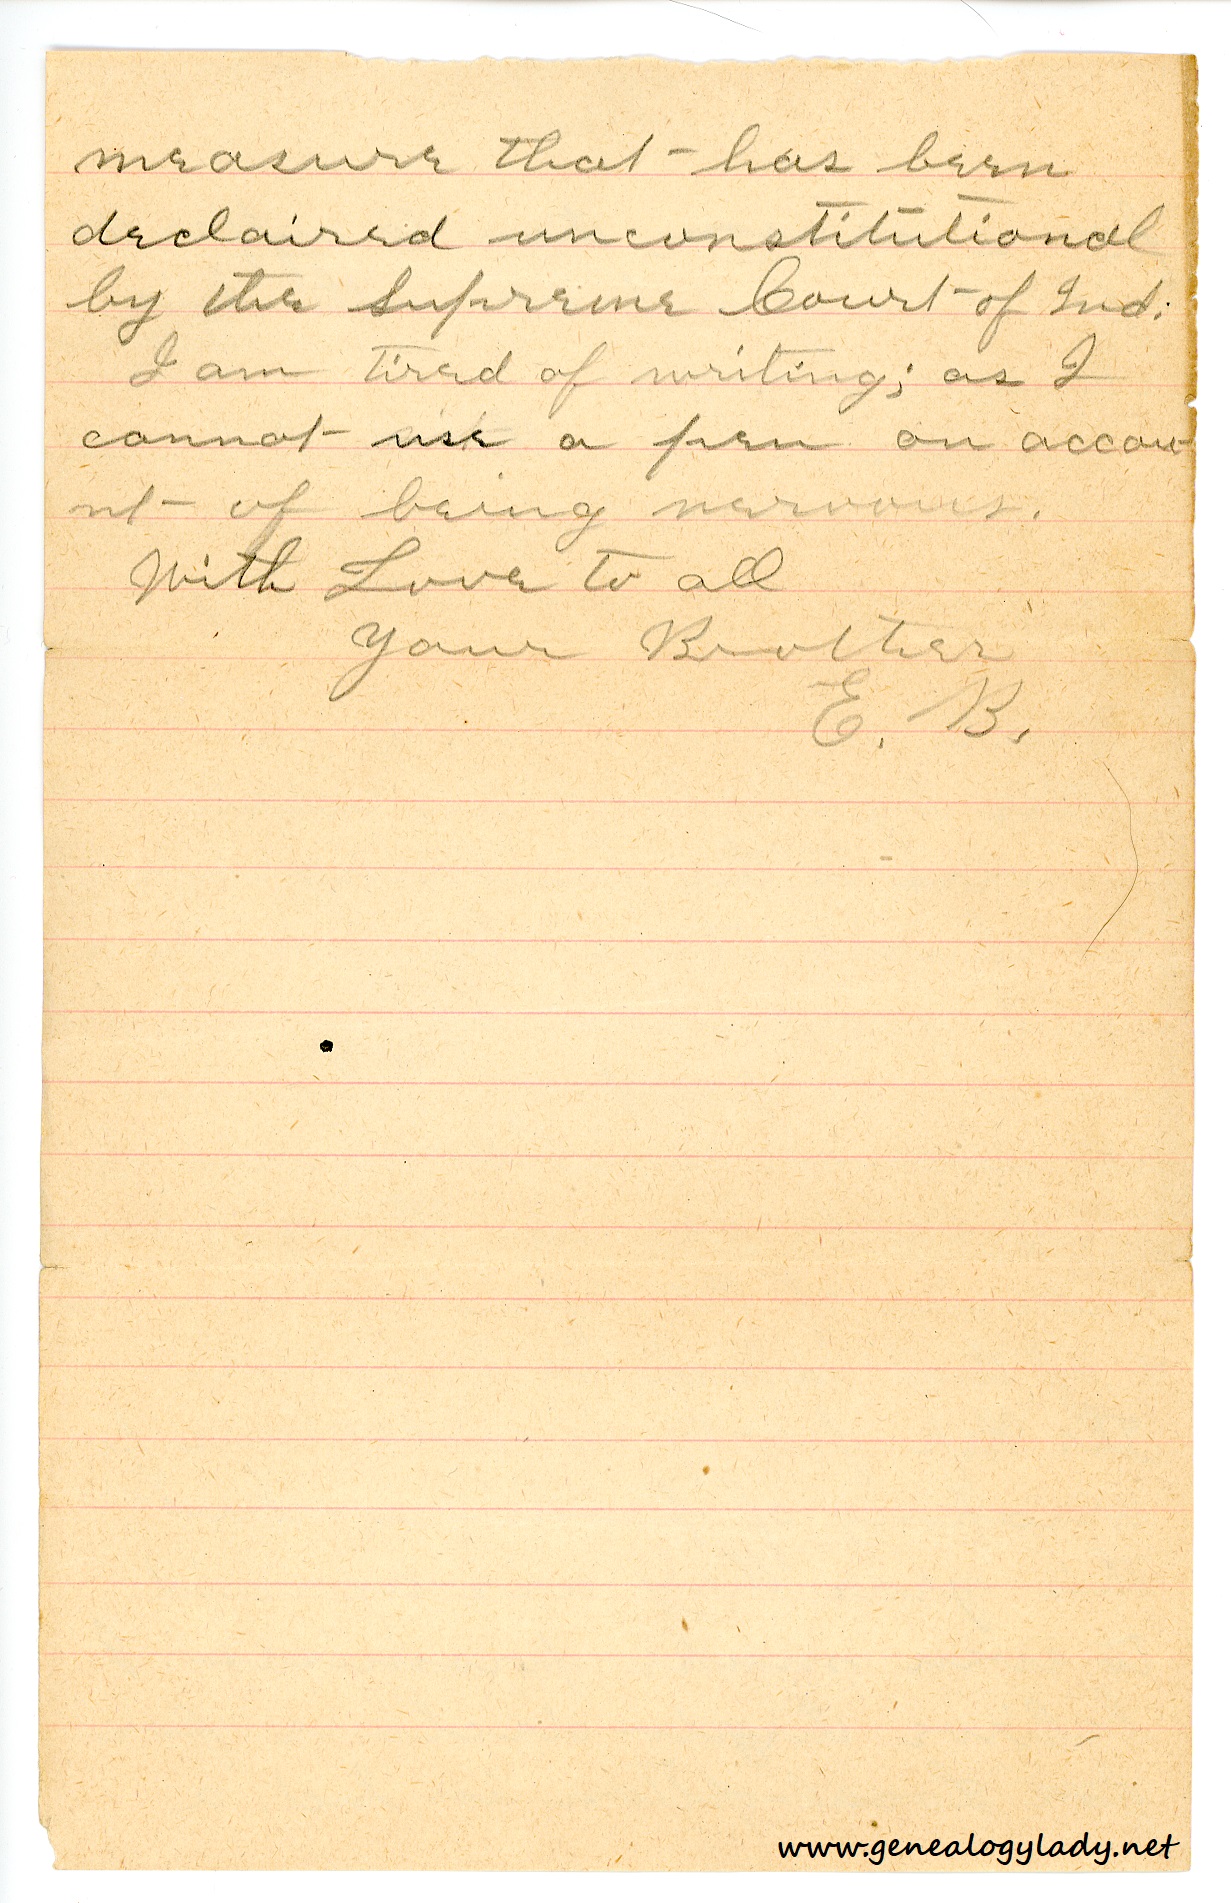 measure that has been
declaired unconstitutional
by the Supreme Court of Ind:
I am tired of writing; as I
cannot use a pen on accou
nt of being nervous.
With Love to all
Your Brother
E. B.
www.genealogylady.net